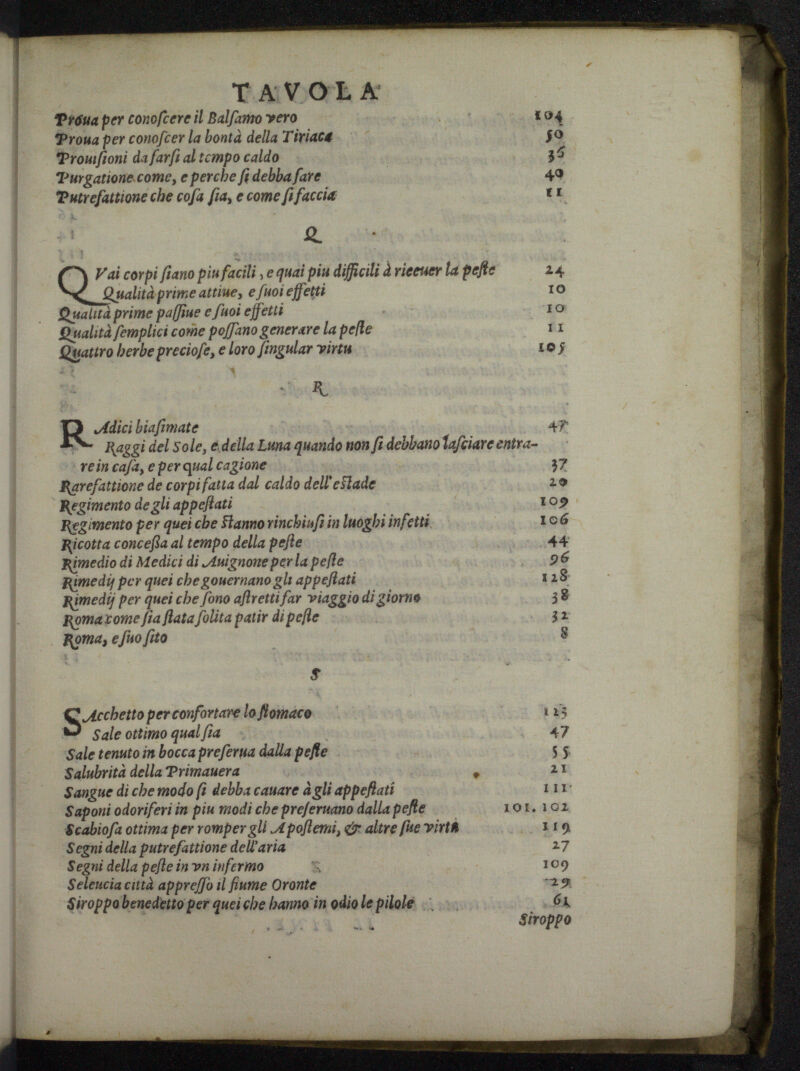 TAVOLA
Proua per conoſcere il Balſamo vero 104
Proua per conoſcer la bontà della Tiriaca 50
Prouiſioni da farſi al tempo caldo 36
Purgatione come, e perche ſi debba fare 40
Putrefattione che coſa ſia, e come ſi faccia 11
Q
QVai corpi ſiano piu facili, e quai piu difficili à riceuer la peſte 24
Qualità prime attiue, e ſuoi effetti 10
Qualità prime paſſiue e ſuoi effetti 10
Qualità ſemplici come poſſano generare la peſte 11
Quattro herbe precioſe, e loro ſingular virtu 105
R
RAdici biaſimate 47
Raggi del Sole, e della Luna quando non ſi debbano laſciare entra-
re in caſa, e per qual cagione 37
Rarefattione de corpi fatta dal caldo dell'eſtade 20
Regimento de gli appeſtati 109
Regimento per quei che ſtanno rinchiuſi in luoghi infetti 106
Ricotta conceſſa al tempo della peſte 44
Rimedio di Medici di Auignone per la peſte 96
Rimedij per quei che gouernano gli appeſtati 128
Rimedij per quei che ſono aſtretti far viaggio di giorno 38
Roma come ſia ſtata ſolita patir di peſte 32
Roma, e ſuo ſito 8
S
SAcchetto per confortare lo ſtomaco 125
Sale ottimo qual ſia 47
Sale tenuto in bocca preſerua dalla peſte 55
Salubrità della Primauera 21
Sangue di che modo ſi debba cauare à gli appeſtati 111
Saponi odoriferi in piu modi che preſeruano dalla peſte 101. 102
Scabioſa ottima per romper gli Apoſtemi, & altre ſue virtù 119
Segni della putrefattione dell'aria 27
Segni della peſte in vn infermo 109
Seleucia città appreſſo il fiume Oronte 29
Siroppo benedetto per quei che hanno in odio le pilole 61
Siroppo